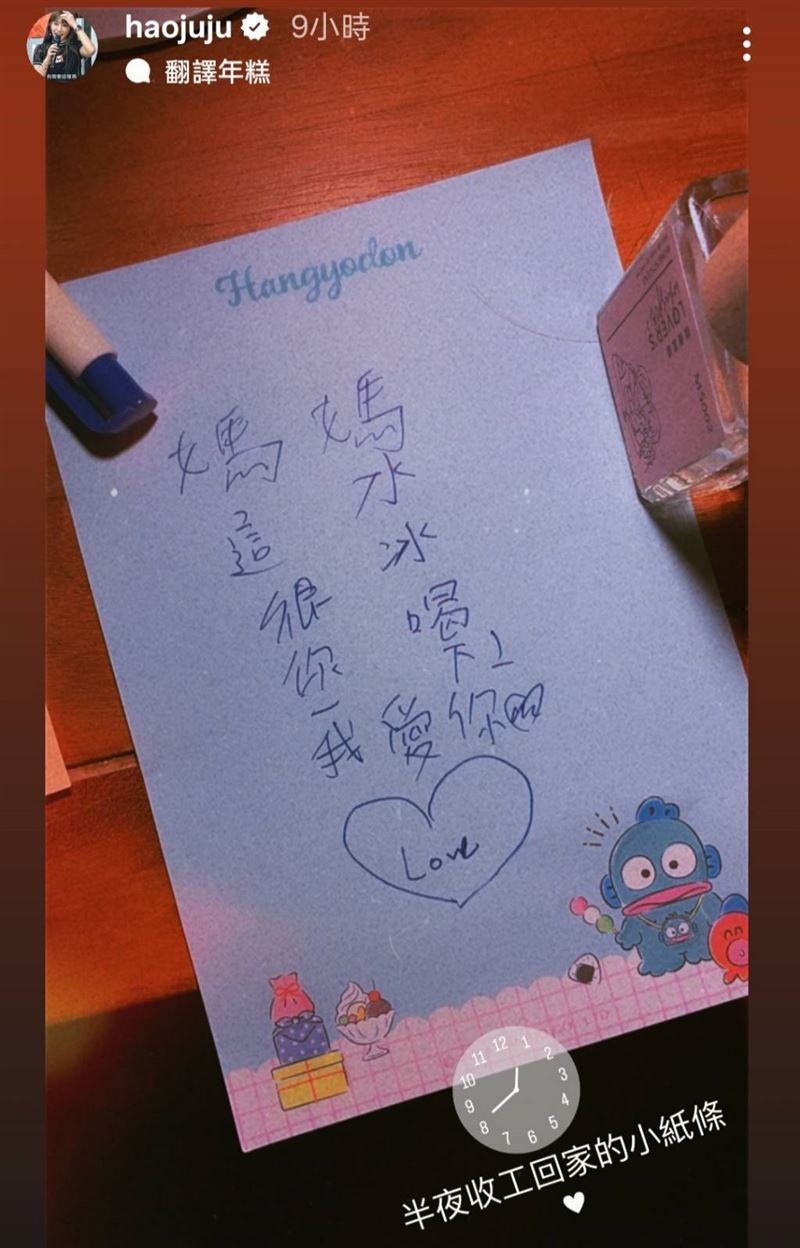 haojuju 9小時
翻譯年糕
Hangyodon
媽媽
這水
很冰
你喝
一下
我愛你
Love
LOVER'S
12 1 2 3 4 5 6 7 8 9 10 11
半夜收工回家的小紙條